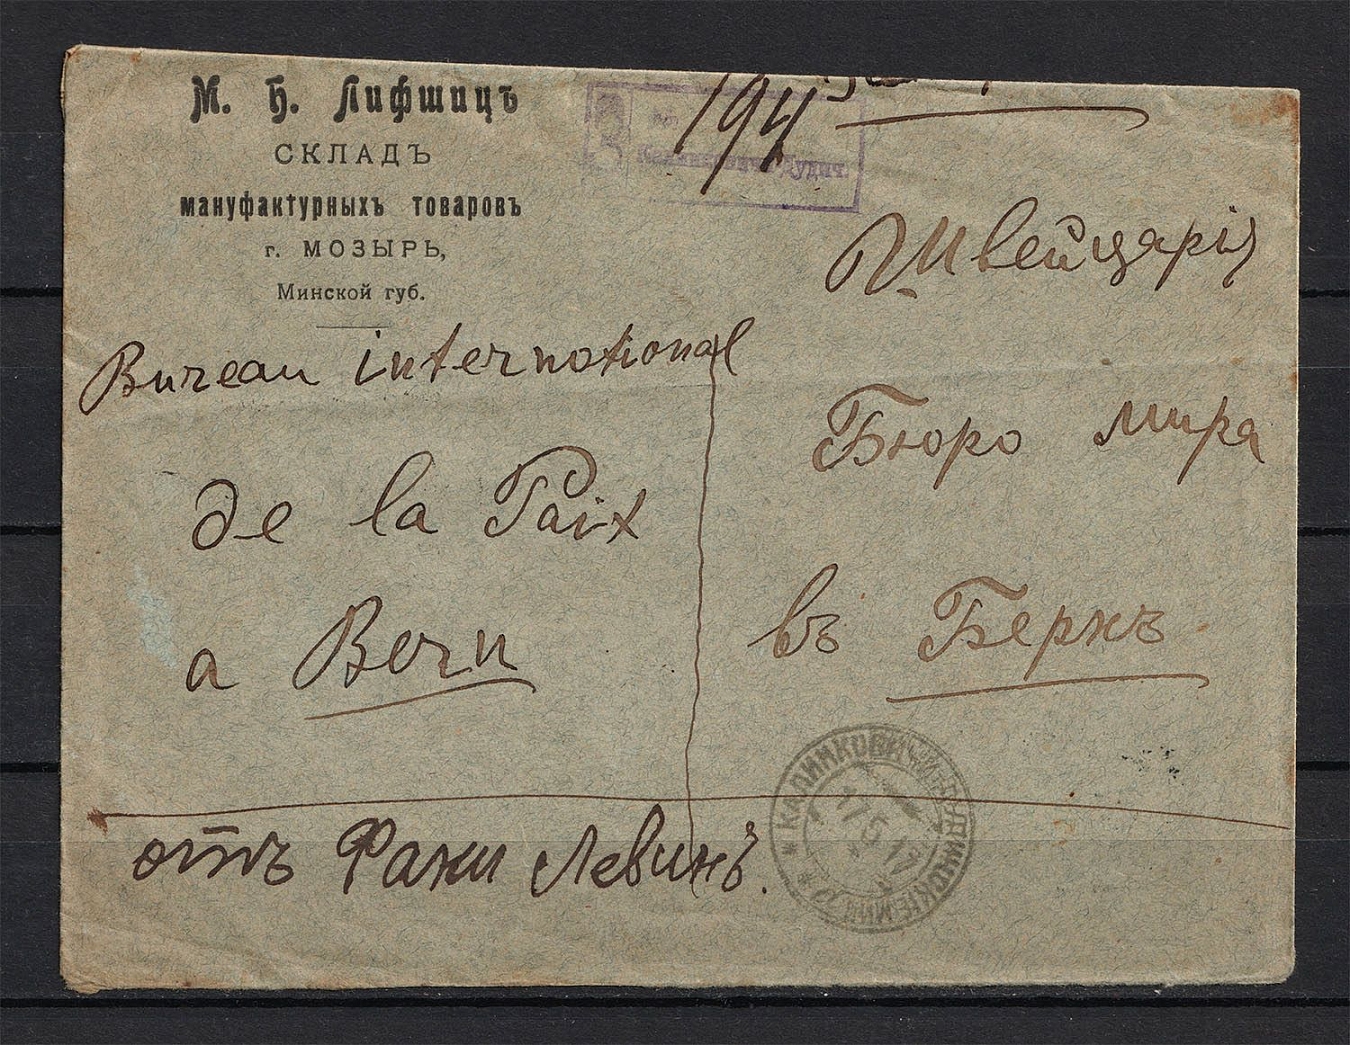 М. Б. Лифшицъ
СКЛАДЪ
мануфактурныхъ товаровъ
г. МОЗЫРЬ,
Минской губ.
194
З
Швейцарія
Bureau international
de la Paix
a Bern
Бюро мира
въ Бернъ
отъ Фани Левинъ.
17 5 12